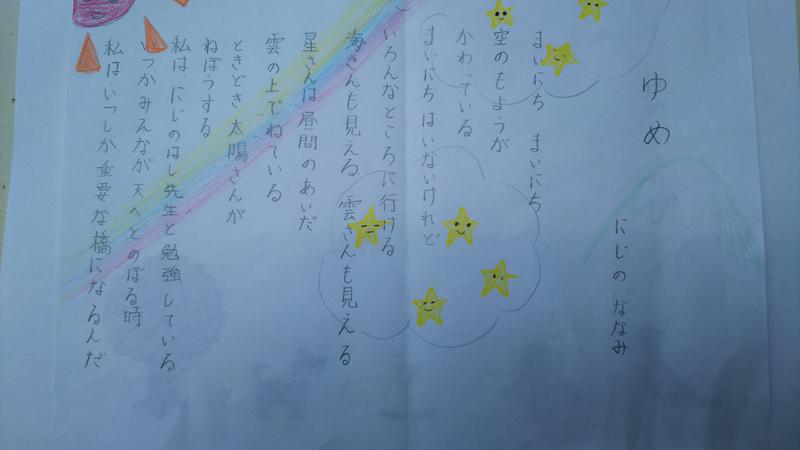 ゆめ
にじの ななみ
まいにち まいにち
空のもようが
かわっている
まいにちはいないけれど
いろんなところに行ける
海さんも見える 雲さんも見える
星さんは昼間のあいだ
雲の上でねている
ときどき太陽さんが
ねぼうする
私は、にじのはし先生と勉強している
いつかみんなが天へとのぼる時
私はいつしか重要な橋になるんだ